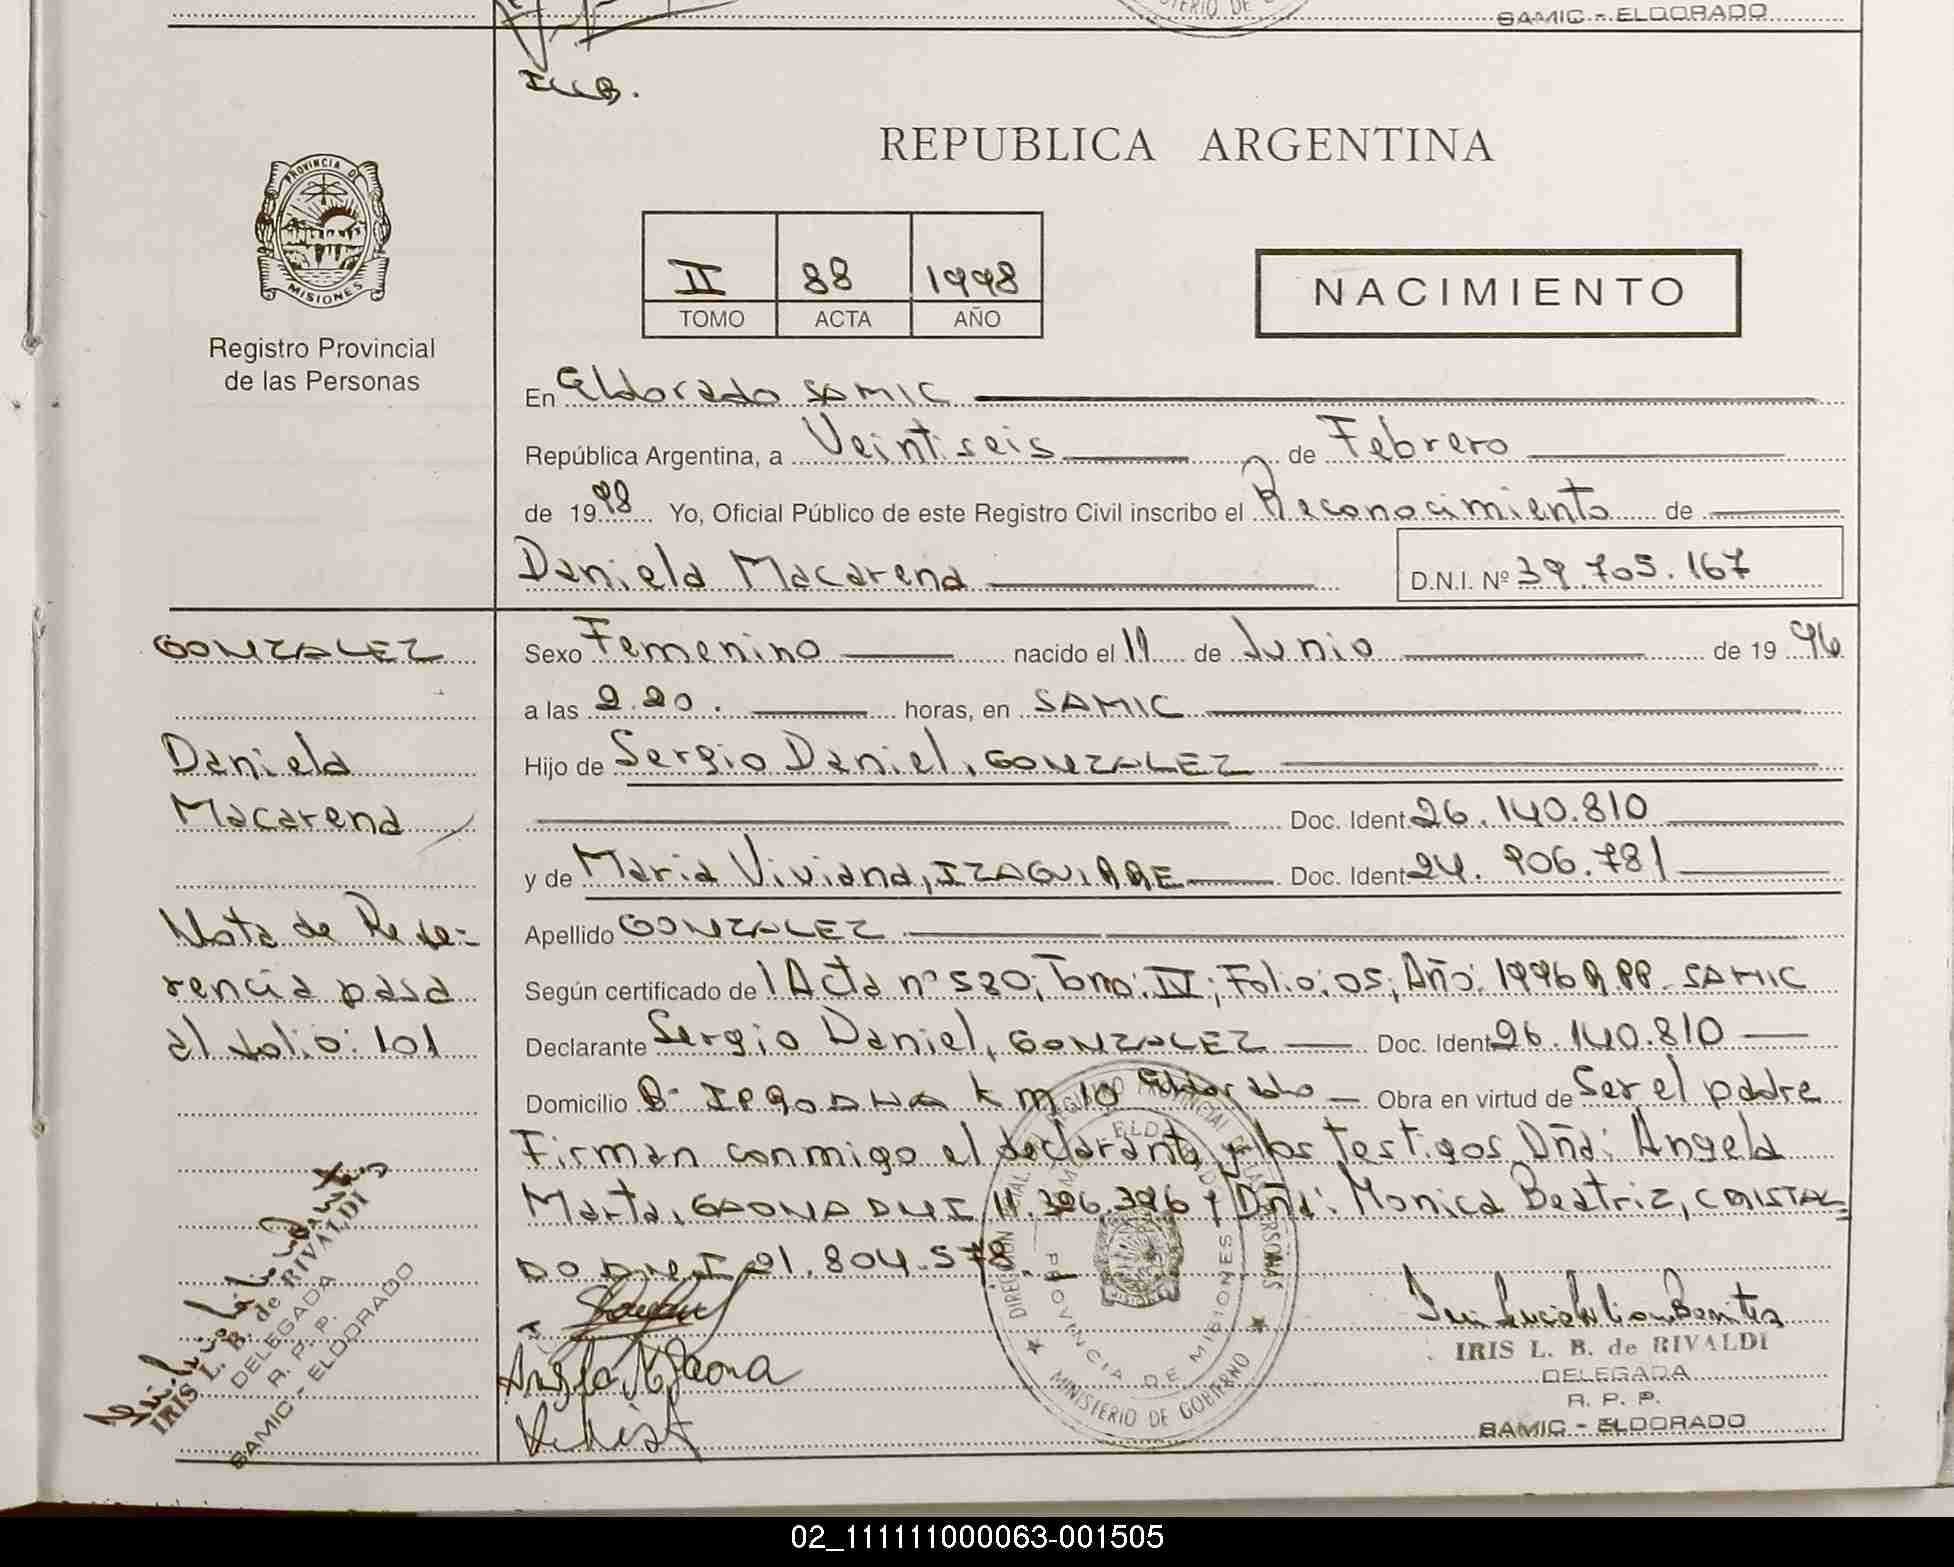 SAMIC - ELDORADO
REPUBLICA ARGENTINA
PROVINCIA DE
MISIONES
Registro Provincial
de las Personas
II 88 1998
TOMO ACTA AÑO
NACIMIENTO
En Eldorado SAMIC
República Argentina, a Veintiseis de Febrero
de 1998 Yo, Oficial Público de este Registro Civil inscribo el Reconocimiento de
Daniela Macarena D.N.I. Nº 39.705.167
GONZALEZ
Sexo Femenino nacido el 11 de Junio de 1996
a las 2.20. horas, en SAMIC
Daniela
Hijo de Sergio Daniel, GONZALEZ
Macarena
Doc. Ident. 26.140.810
y de Maria Viviana, IZAGUIRRE Doc. Ident. 24.906.781
Nota de Refe-
Apellido GONZALEZ
rencia pasa
Según certificado de 1 Acta nº 520; Tomo: IV; Folio: 05; Año: 1996 R.PP. SAMIC
al folio: 101
Declarante Sergio Daniel, GONZALEZ Doc. Ident. 26.140.810
Domicilio Bº IPRODHA Km 10 Eldorado Obra en virtud de Ser el padre
Firman conmigo el declarante y los testigos Dña: Angela
Marta, GAONA DNI 11.326.396 y Dña: Monica Beatriz, CRISTAL=
DO DNI 21.804.578.
DIRECCION REGISTRO PROVINCIAL DE LAS PERSONAS
PROVINCIA DE MISIONES
MINISTERIO DE GOBIERNO
Angela M Gaona
IRIS L. B. de RIVALDI
DELEGADA
R. P. P.
SAMIC - ELDORADO
IRIS L. B. de RIVALDI
DELEGADA
R. P. P.
SAMIC - ELDORADO
02_111111000063-001505